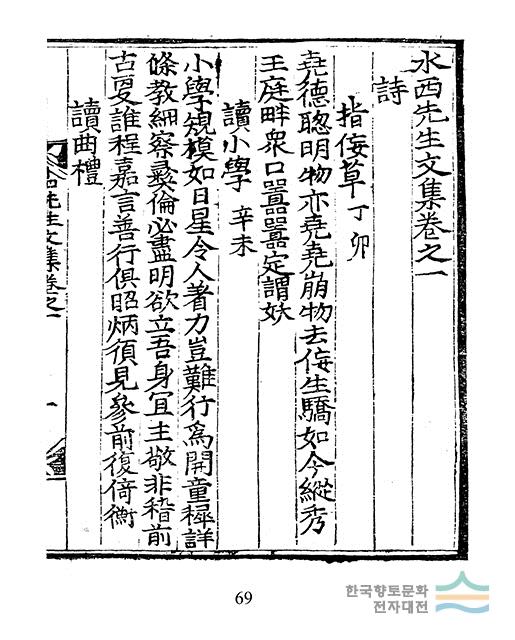 水西先生文集卷之一
詩
指侫草 丁卯
堯德聰明物亦堯堯崩物去侫生驕如今縱秀
王庭畔衆口囂囂定謂妖
讀小學 辛未
小學規模如日星令人著力豈難行爲開童穉詳
條教細察彛倫必盡明欲立吾身冝主敬非稽前
古更誰程嘉言善行俱昭炳須見參前復倚衡
讀曲禮
先生文集卷之一
一
69
한국향토문화
전자대전